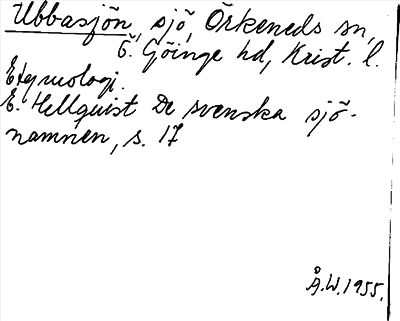 Ubbasjön, sjö, Örkeneds sn,
Ö. Göinge hd, Krist. l.
Etymologi.
E. Hellquist De svenska sjö-
namnen, s. 17
Å.W. 1955.